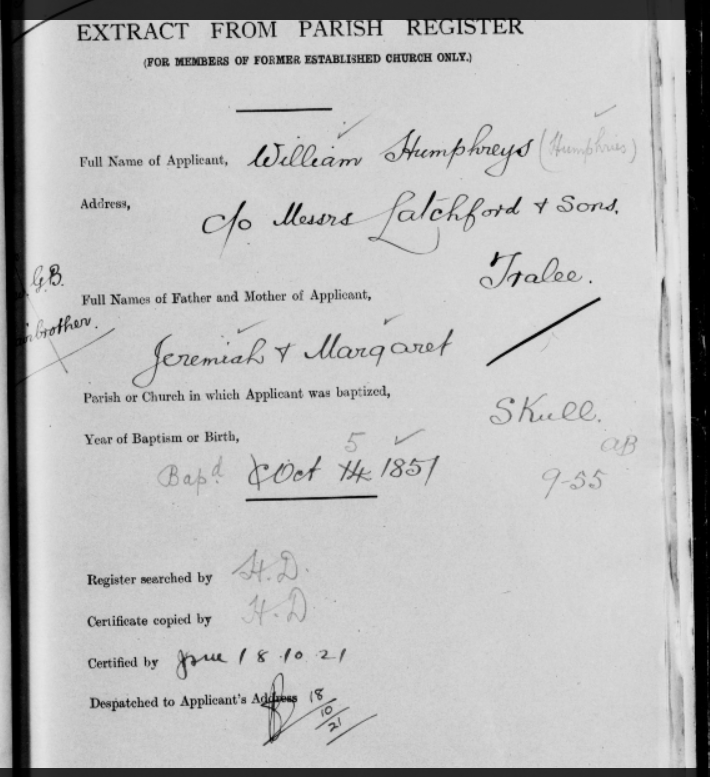 EXTRACT FROM PARISH REGISTER
(FOR MEMBERS OF FORMER ESTABLISHED CHURCH ONLY.)
Full Name of Applicant, William Humphreys (Humphries)
Address,
c/o Messrs Latchford & Sons,
Tralee.
G.B.
brother.
Full Names of Father and Mother of Applicant,
Jeremiah & Margaret
Parish or Church in which Applicant was baptized,
Skull.
Year of Baptism or Birth,
5
aB
Bapd Oct 14 1851
9-55
Register searched by H.D.
Certificate copied by H.D
Certified by 18.10.21
Despatched to Applicant's Address 18/10/21